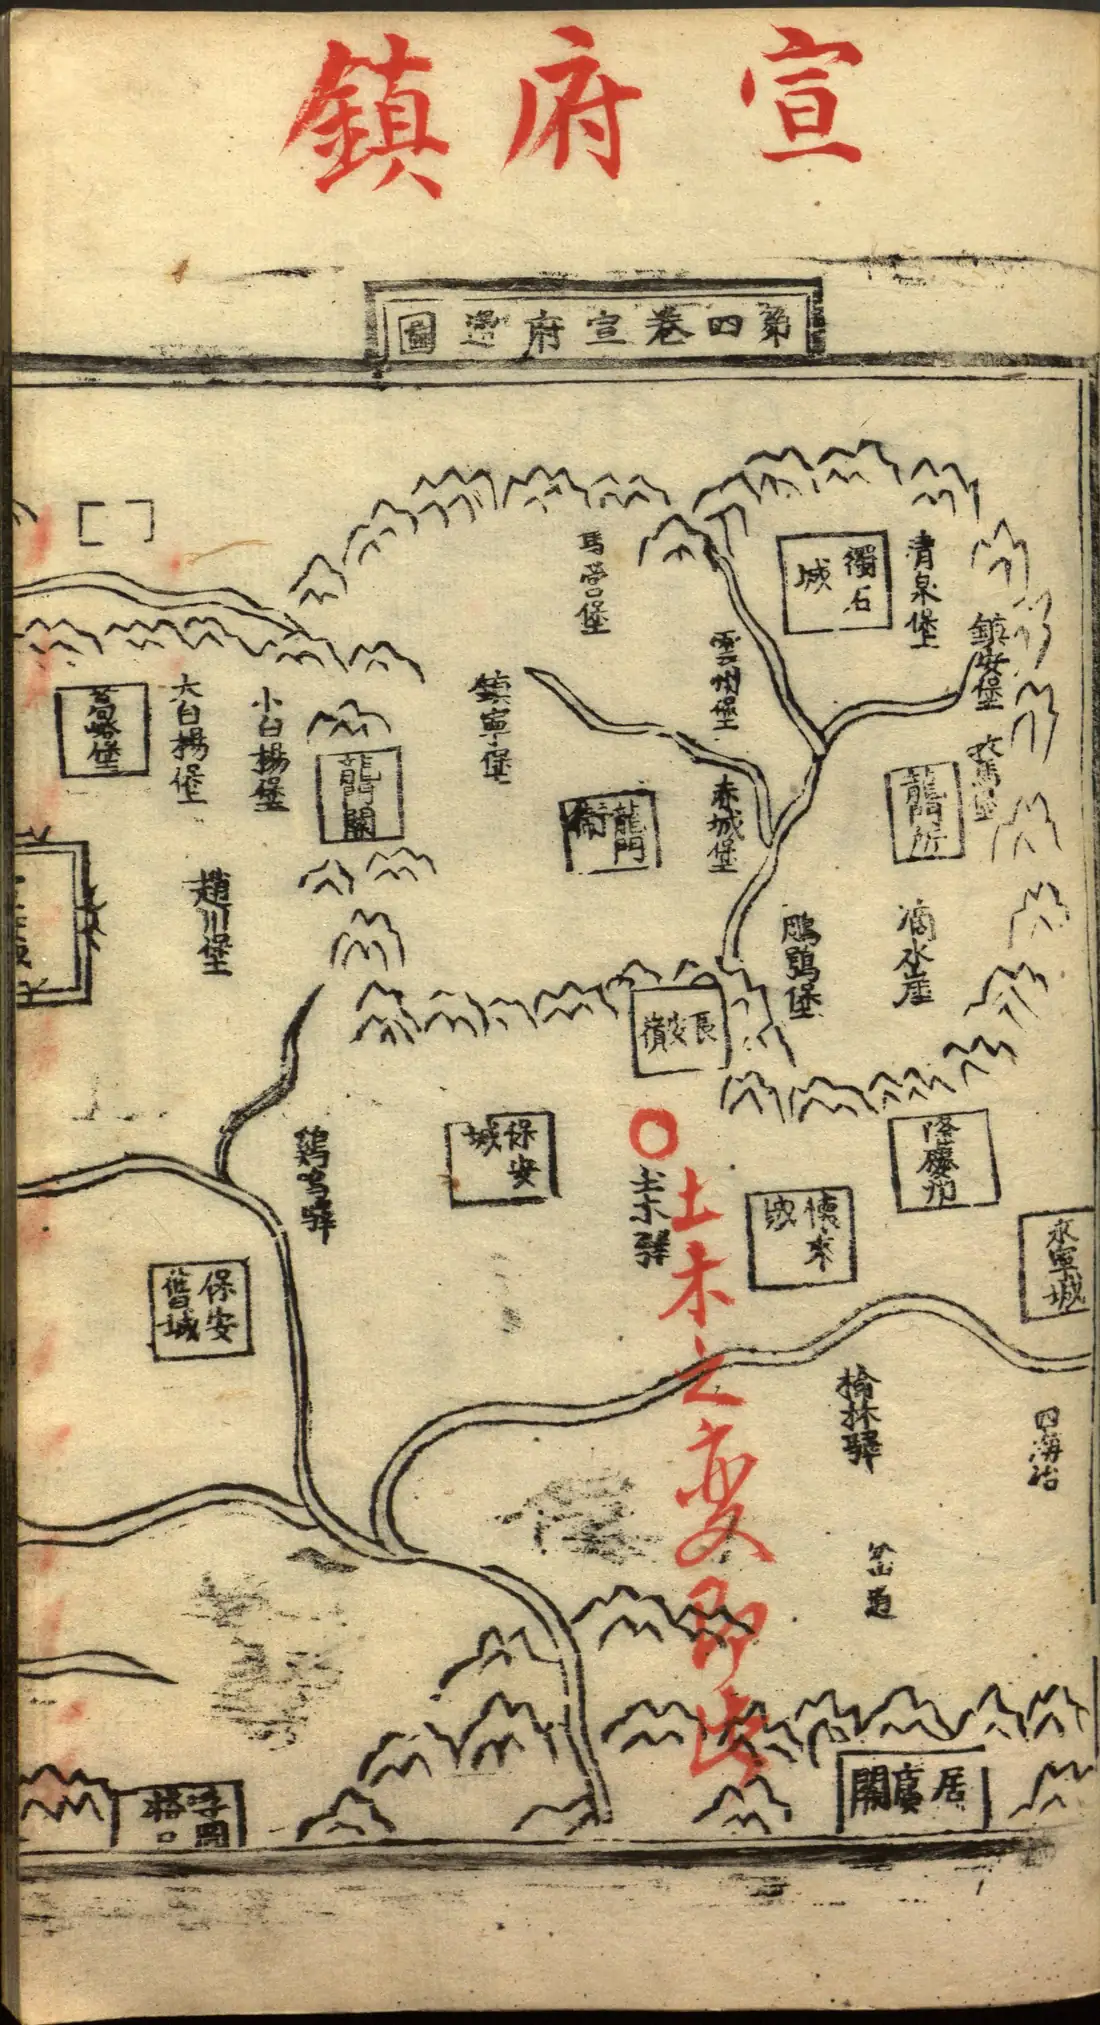 宣府鎮
第四卷宣府邊圖
獨石城
清泉堡
鎮安堡
馬營堡
雲州堡
鎮寧堡
赤城堡
龍門衛
龍門所
滴水崖
鵰鶚堡
長安嶺
龍門關
小白揚堡
大白揚堡
葛峪堡
趙川堡
隆慶州
永寧城
懷來城
土木驛
土木之变即此
保安城
雞鳴驛
保安舊城
榆林驛
四海冶
岔道
居庸關